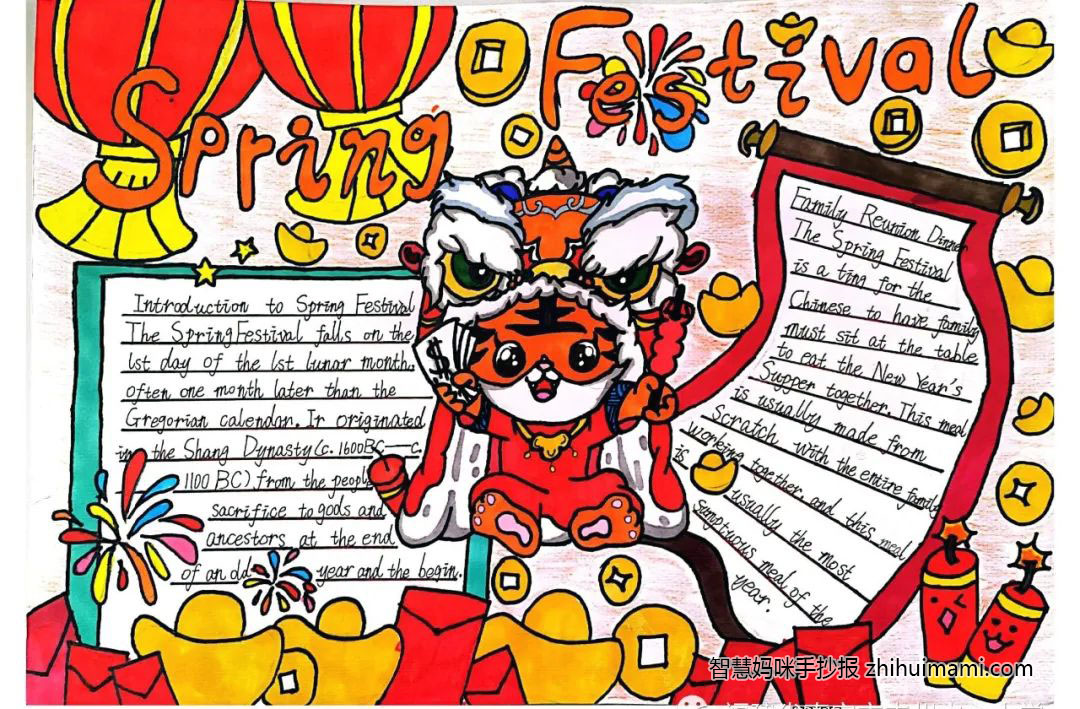 Spring Festival
Introduction to Spring Festival
The Spring Festival falls on the
1st day of the 1st lunar month.
often one month later than the
Gregorian calendar. Ir originated
in the Shang Dynasty (c. 1600BC—c.
1100 BC) from the people
sacrifice to gods and
ancestors at the end
of an old year and the begin.
Family Reunion Dinner
The Spring Festival
is a ting for the
Chinese to have family
must sit at the table
to eat the New Year's
Supper together. This meal
is usually made from
Scratch with the entire family
working together. and this meal
is usually the most
sumptuous meal of the
year.
智慧妈咪手抄报 zhihuimami.com